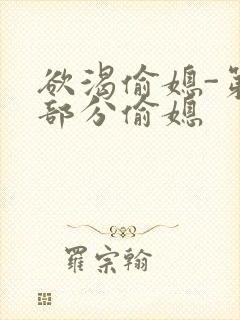 欲渴偷媳-第
部分偷媳
羅宗翰